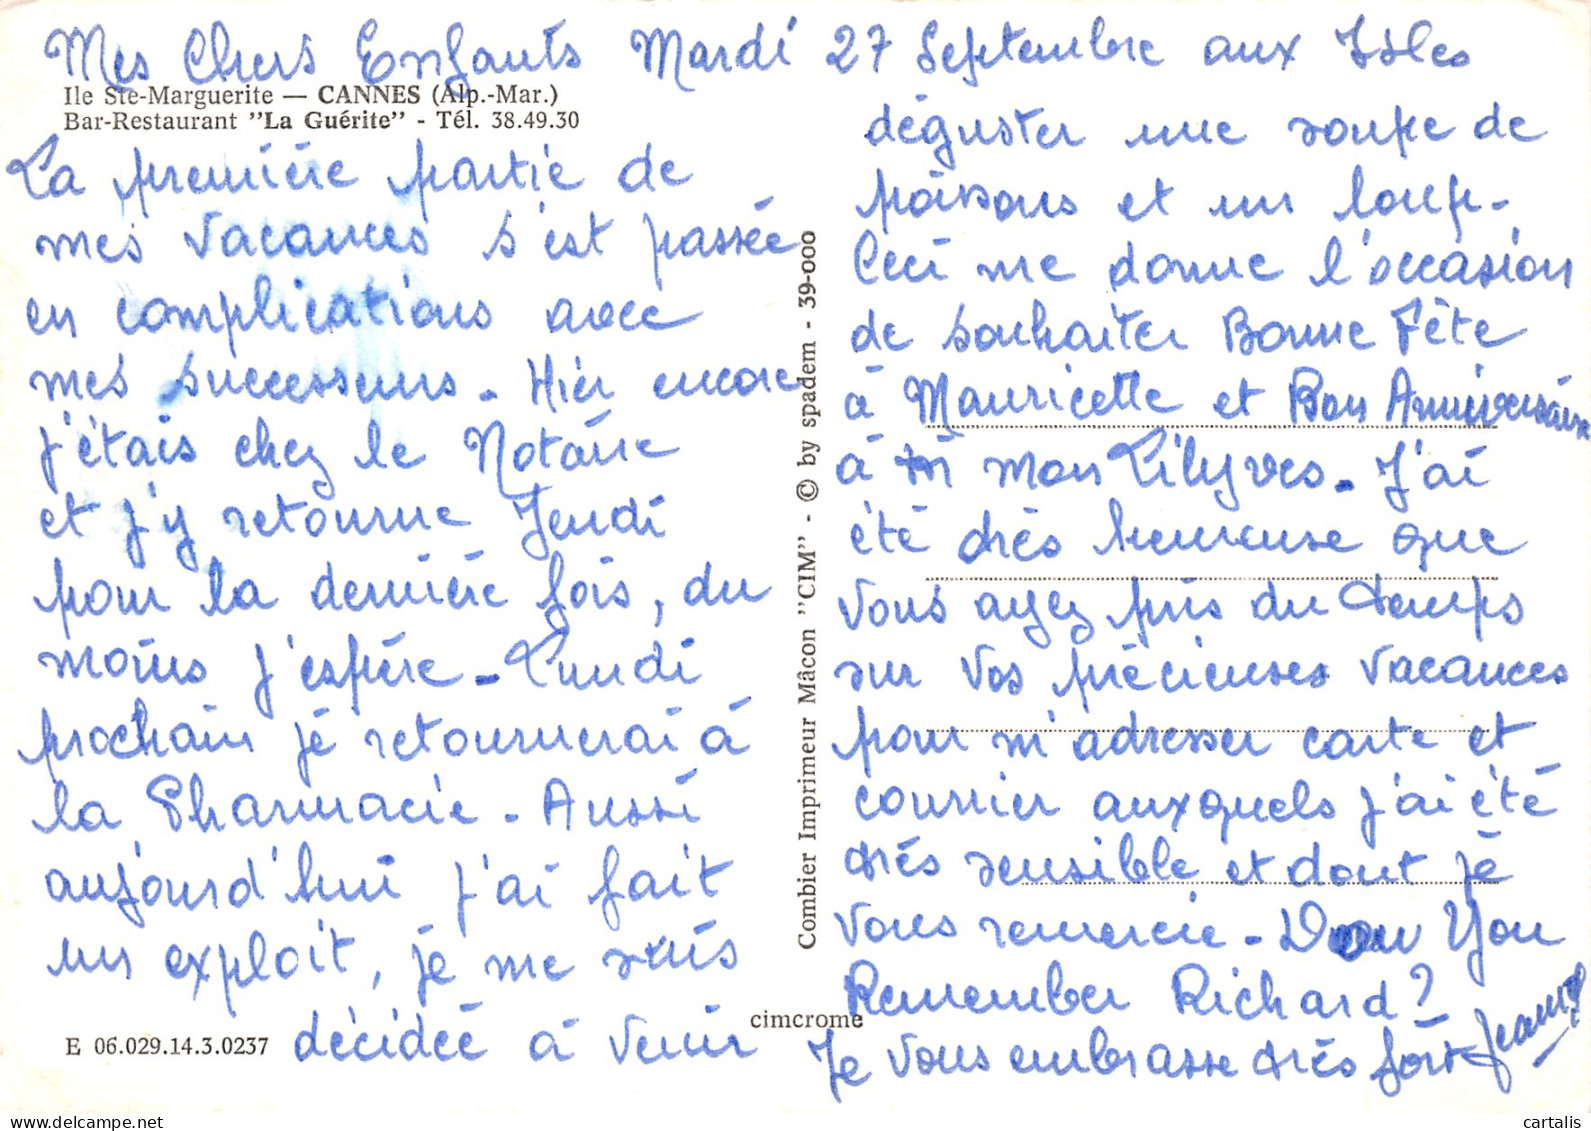 Mes Chers Enfants Mardi 27 Septembre aux Isles
Ile Ste-Marguerite — CANNES (Alp.-Mar.)
Bar-Restaurant "La Guérite" - Tél. 38.49.30
La première partie de
mes vacances s'est passée
en complications avec
mes successeurs. Hier encore
j'étais chez le Notaire
et j'y retourne Jeudi
pour la dernière fois, du
moins j'espère - Lundi
prochain je retournerai à
la Pharmacie. Aussi
aujourd'hui j'ai fait
un exploit, je me suis
décidée à venir
E 06.029.14.3.0237
Combier Imprimeur Mâcon "CIM" - © by spadem - 39-000
cimcrome
déguster une soupe de
poissons et un loup.
Ceci me donne l'occasion
de souhaiter Bonne Fête
à Mauricette et Bon Anniversaire
à mon Lilyves. J'ai
été très heureuse que
vous ayez pris du temps
sur vos précieuses vacances
pour m'adresser carte et
courrier auxquels j'ai été
très sensible et dont je
vous remercie - Dow You
Remember Richard?
Je vous embrasse très fort
cartalis
cartalis.com